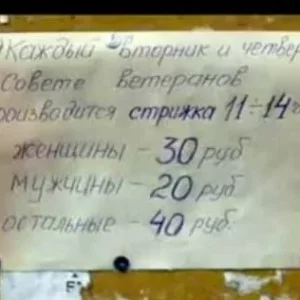 Каждый вторник и четвер
в
Совете ветеранов
роизводится стрижка 11÷14ч
женщины - 30 руб
мужчины - 20 руб
остальные - 40 руб.